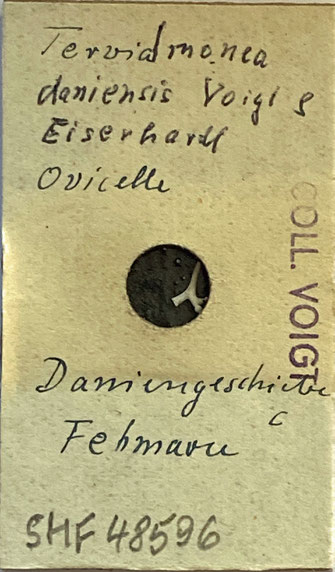 Tervidmonea
daniensis Voigt &
Eiserhardt
Ovicelle
COLL. VOIGT
Daniengeschiebe
C
Fehmarn
SMF 48596